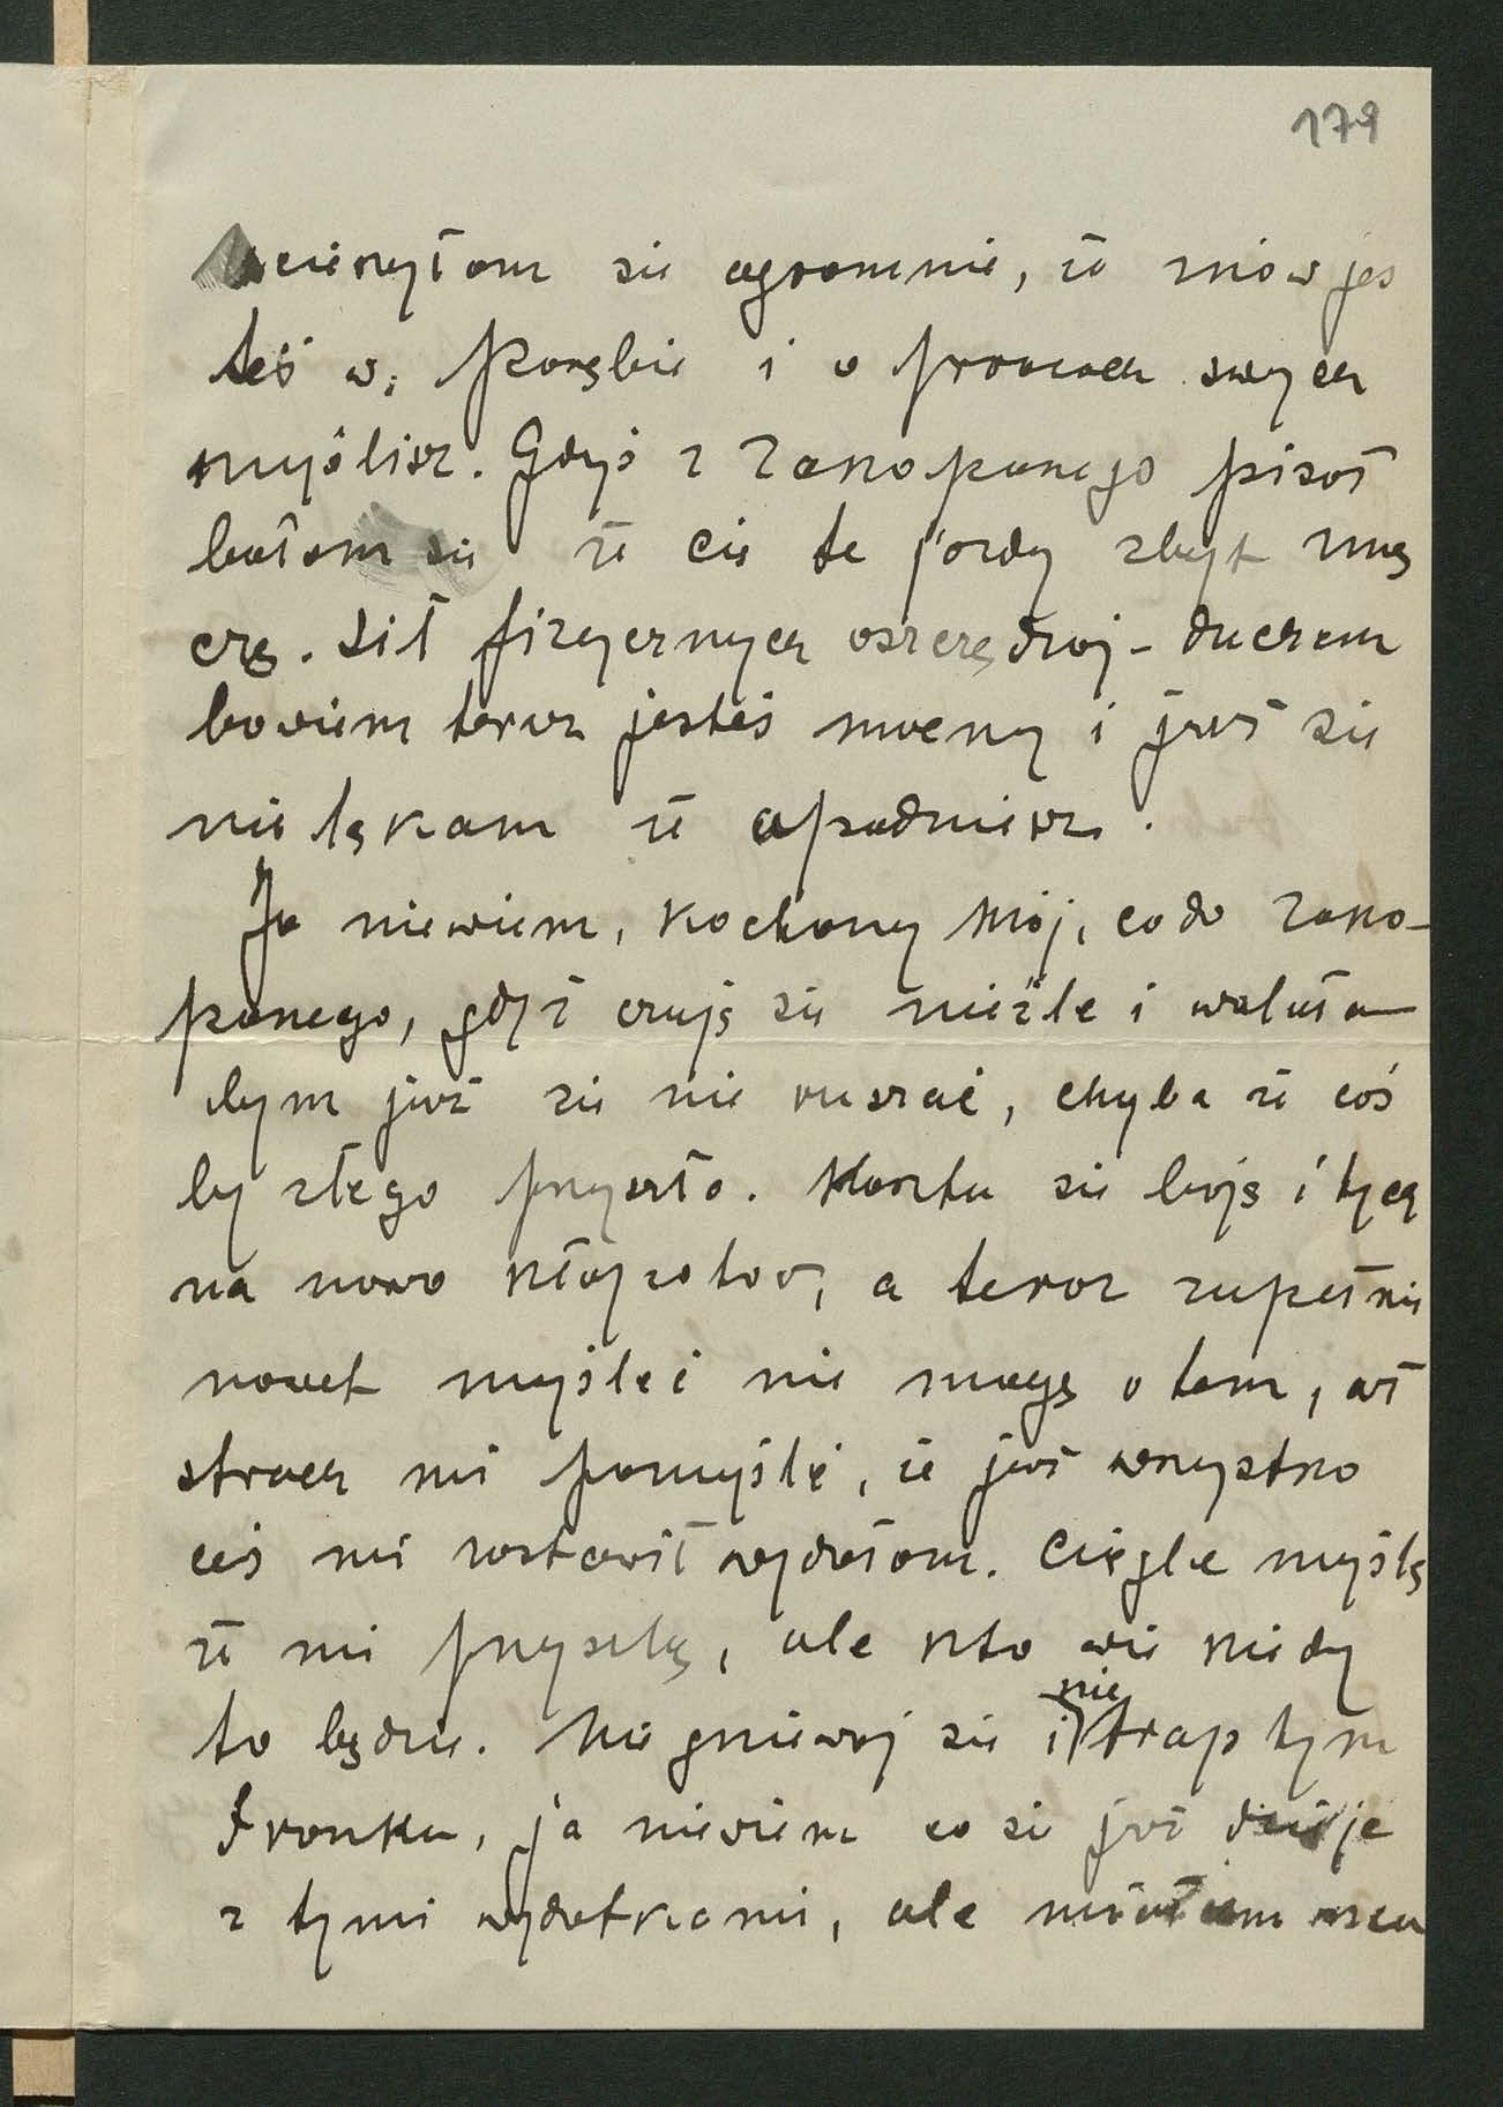 179
ucieszyłam się ogromnie, że znów jes
teś w Porębie i o pracach swych
myślisz. Gdyś z Zakopanego pisał
bałam się że cię te jazdy zbyt mę
czą. Sił fizycznych oszczędzaj – duchem
bowiem teraz jesteś mocny i już się
nie lękam że upadniesz.
Ja niewiem, kochany mój, co do Zako-
panego, gdyż czuję się nieźle i wolała
bym już się nie ruszać, chyba że coś
by złego przyszło. Kosztu się boję i tych
na nowo kłopotów, a teraz zupełnie
nawet myśleć nie mogę o tem, aż
strach mi pomyśleć, że już wszystko
coś mi zostawił wydałam. Ciągle myślę
że mi przyszlą, ale kto wie kiedy
to będzie. Nie gniewaj się i nie trap tym
Franku, ja niewiem co się już dzieje
z tymi wydatkami, ale miałam